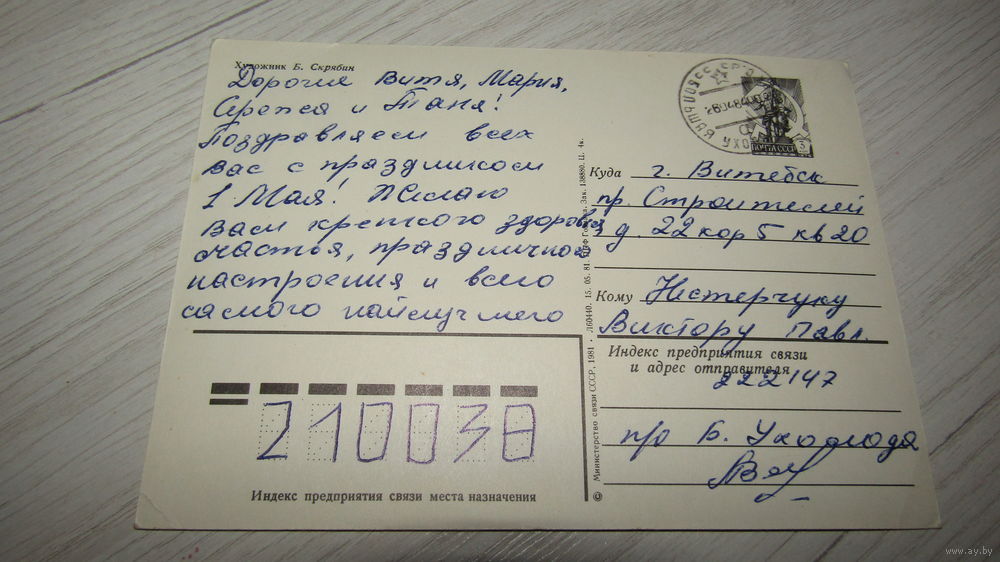 Художник Б. Скрябин
Дорогие Витя, Мария,
Сережа и Таня!
Поздравляем всех
вас с праздником
1 Мая! Желаю
вам крепкого здоровья
счастья, праздничного
настроения и всего
самого наилучшего
ПОЧТА СССР
3
Куда г. Витебск
пр. Строителей
д. 22 кор 5 кв 20
Кому Нестерчуку
Виктору Павл.
Индекс предприятия связи
и адрес отправителя
222147
п/о Б. Ухолода
210038
Индекс предприятия связи места назначения
© Министерство связи СССР, 1981 · Л60440. 15. 05. 81. Зак. 138880. Ц. 4к.
www.ay.by